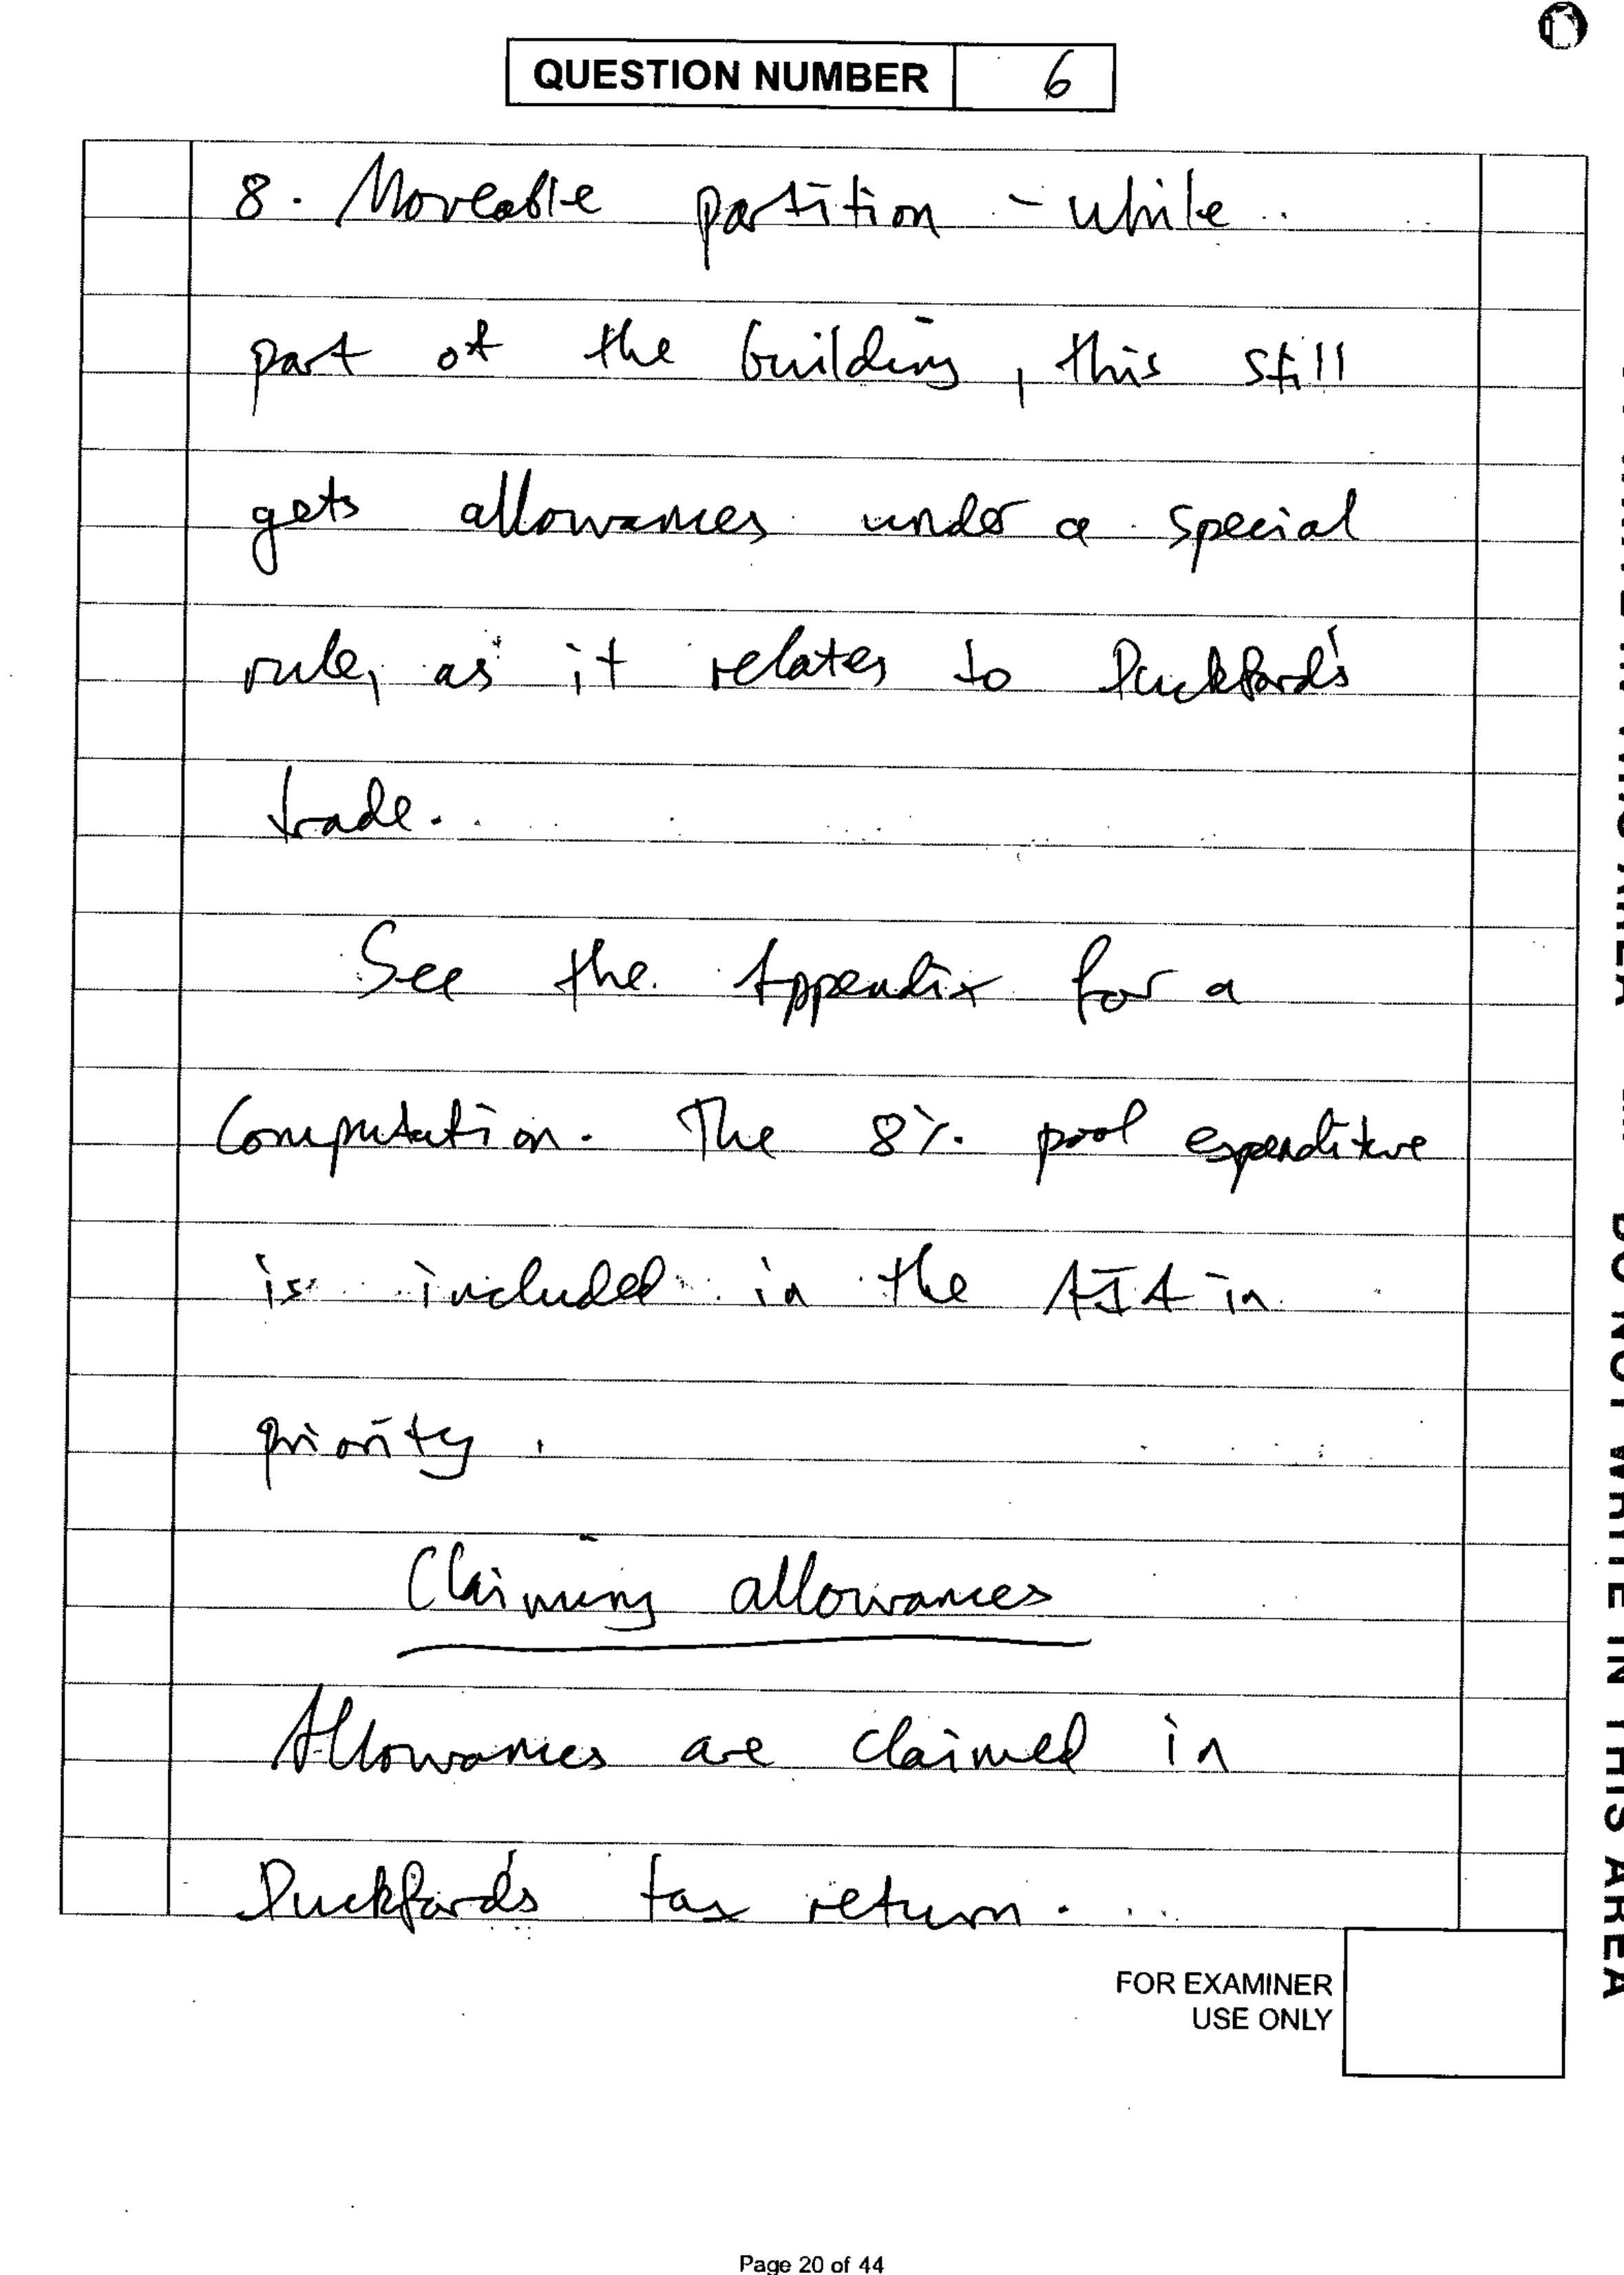 QUESTION NUMBER 6
8. Moveable partition - while
part of the building, this still
gets allowances under a special
rule, as it relates to Duckford's
trade.
See the Appendix for a
Computation. The 8% pool expenditure
is included in the AIA in
priority.
Claiming allowances
Allowances are claimed in
Duckford's tax return.
FOR EXAMINER
USE ONLY
Page 20 of 44
DO NOT WRITE IN THIS AREA